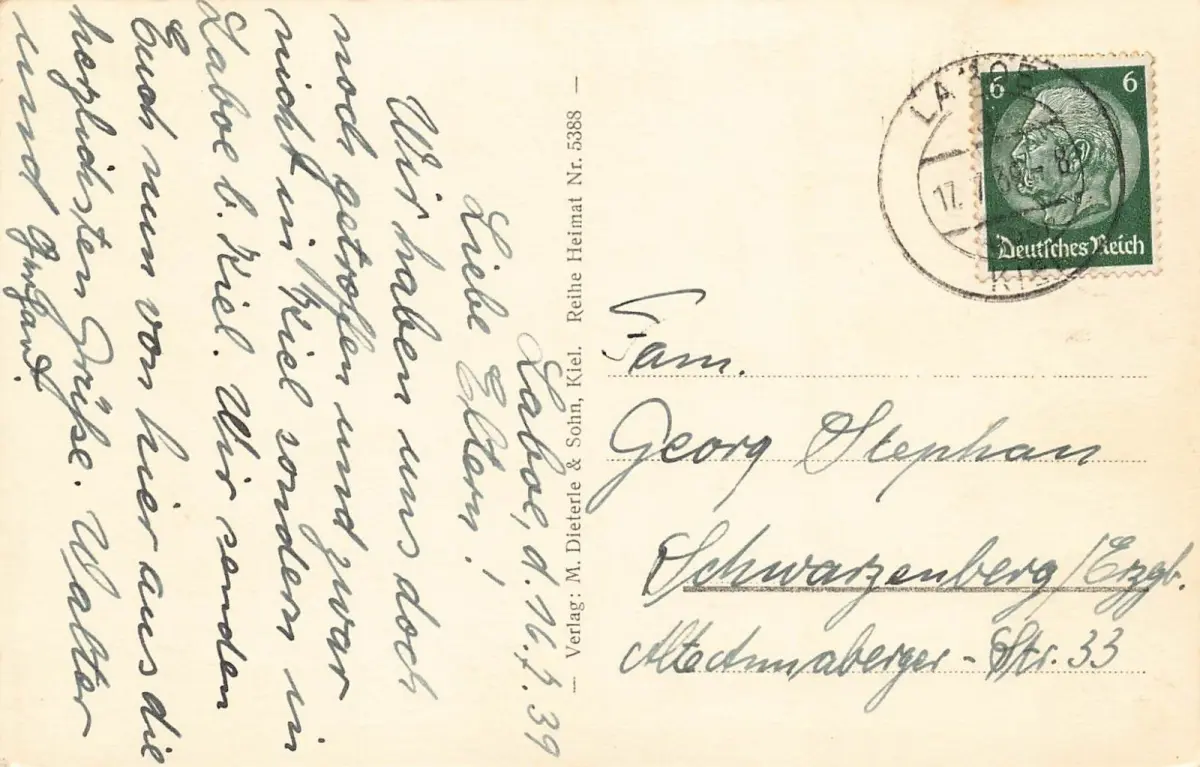 Laboe, d. 16.7.39
Liebe Eltern!
Wir haben uns doch
noch getroffen und zwar
nicht in Kiel sondern in
Laboe b. Kiel. Wir senden
Euch nun von hier aus die
herzlichsten Grüße. Walter
und
— Verlag: M. Dieterle & Sohn, Kiel. Reihe Heimat Nr. 5388 —
6 6
Deutsches Reich
LABOE
17. 7. 39
KIEL
Fam.
Georg Stephan
Schwarzenberg/Erzgb.
Alte Annaberger-Str. 33